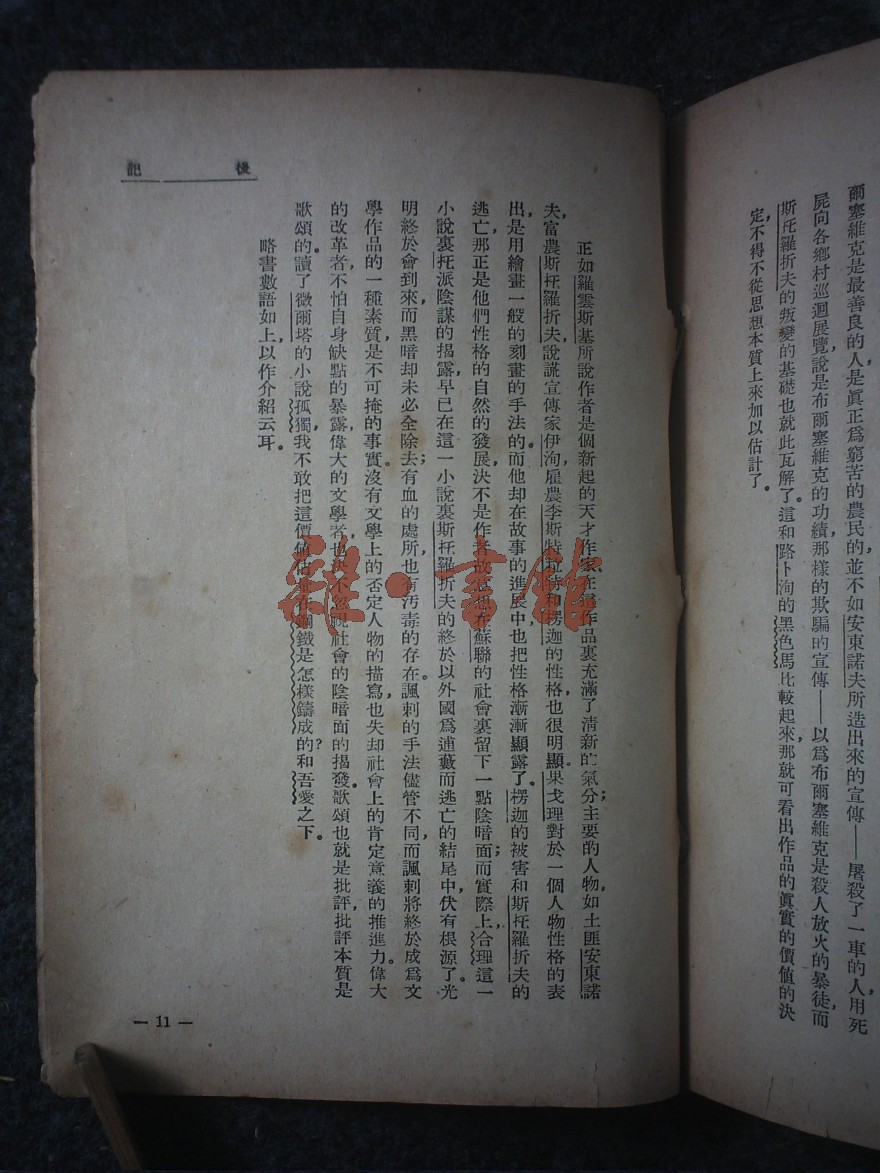 爾塞維克是最善良的人,是眞正爲窮苦的農民的,並不如安東諾夫所造出來的宣傳——屠殺了一車的人,用死
屍向各鄉村巡迴展覽,說是布爾塞維克的功績,那樣的欺騙的宣傳——以爲布爾塞維克是殺人放火的暴徒,而
斯托羅折夫的叛變的基礎也就此瓦解了。這和路卜洵的黑色馬比較起來,那就可看出作品的眞實的價值的決
定,不得不從思想本質上來加以估計了。
後記
正如羅雲斯基所說,作者是個新起的天才作家,在這作品裏充滿了清新的氣分;主要的人物,如土匪安東諾
夫,富農斯托羅折夫,說謊宣傳家伊洵,雇農李斯特拉特和楞迦的性格也很明顯。果戈理對於一個人物性格的表
出,是用繪畫一般的刻畫的手法的。而他却在故事的進展中,也把性格漸漸顯露了。楞迦的被害和斯托羅折夫的
逃亡,那正是他們性格的自然的發展,決不是作者故意想在蘇聯的社會裏留下一點陰暗面;而實際上,合理這一
小說裏托派陰謀的揭露,早已在這一小說裏斯托羅折夫的終於以外國爲逋藪而逃亡的結尾中,伏有根源了。光
明終於會到來,而黑暗却未必全除去;有血的處所,也有汚毒的存在。諷刺的手法儘管不同,而諷刺將終於成爲文
學作品的一種素質,是不可掩的事實。沒有文學上的否定人物的描寫,也失却社會上的肯定意義的推進力。偉大
的改革者,不怕自身缺點的暴露,偉大的文學者,也決不忽視社會的陰暗面的揭發。歌頌也就是批評,批評本質是
歌頌的。讀了微爾塔的小說孤獨,我不敢把這價值估在鋼鐵是怎樣鑄成的?和吾愛之下。
略書數語如上,以作介紹云耳。
— 11 —
雜·書館